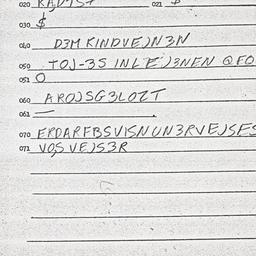 020 KAD457 021 $
030 $
040 D3M KINDVEJN3N
050 TOJ-3S INLEJ3NEN QFO
051 O
060 AROJSG3LOZT
061 —
070 ERDARFBSVISNUN3RVEJSES
071 VOSVEJS3R